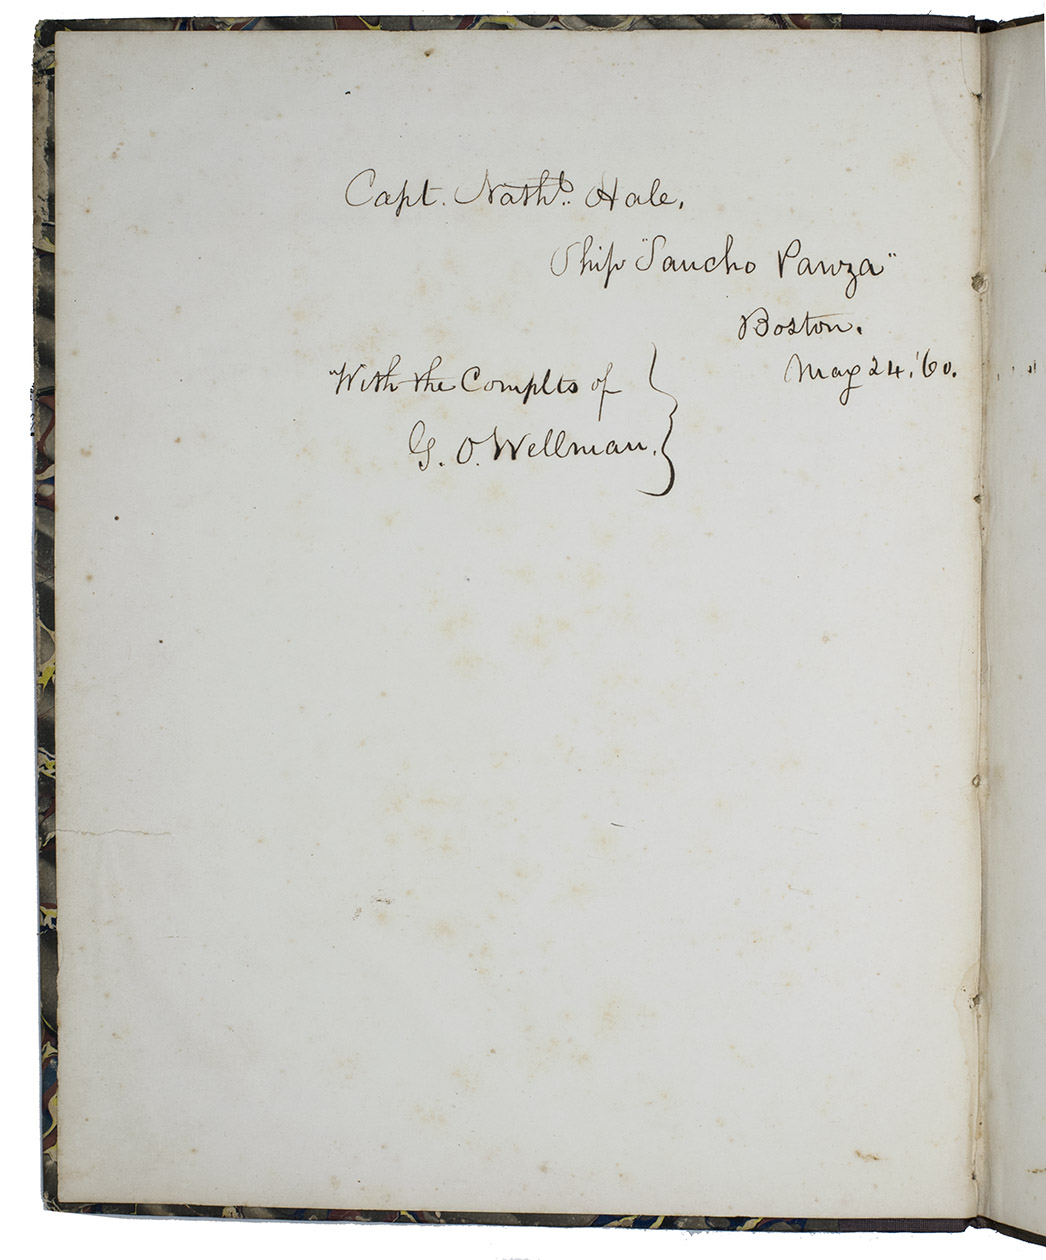 Capt. Nathl. Hale,
Ship "Sancho Panza"
Boston.
May 24, '60.
"With the Complts of
G. O. Wellman.